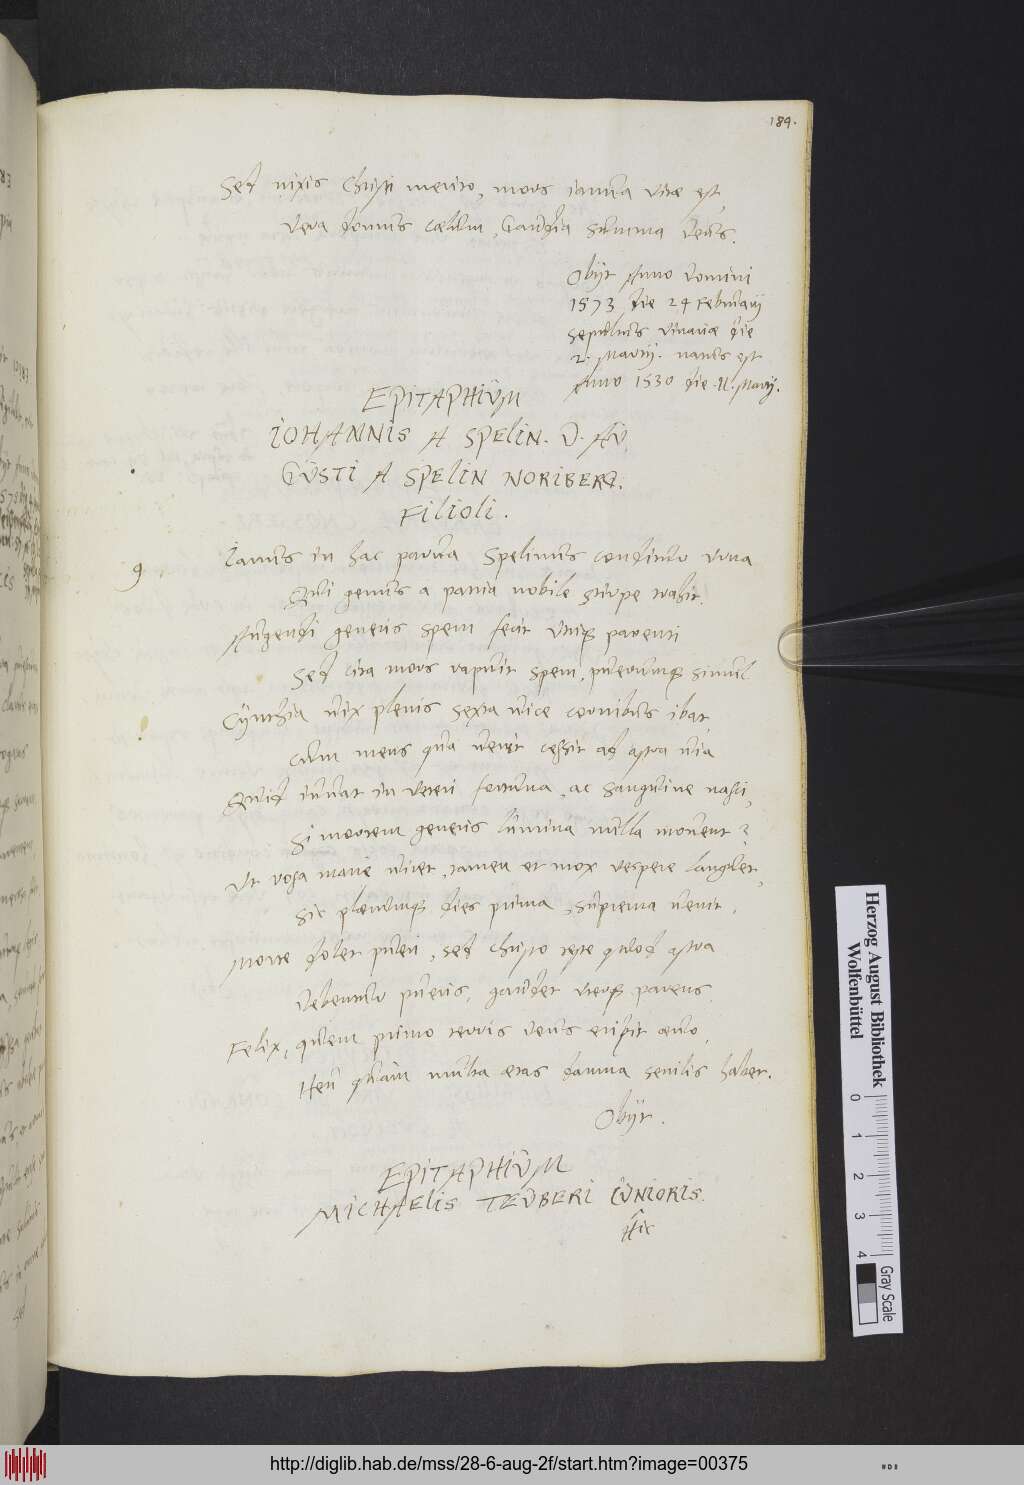 184.
Sed nixis Christi merito, mors ianua vitæ est,
Vera domus cælum, Gaudia summa Deus.
Obijt Anno Domini
1573 die 24 Februarij
sepultus Vinariæ die
2. Martij. natus est
Anno 1530 die 11. Martij.
EPITAPHIUM
IOHANNIS A SPELIN. D. AU
GUSTI A SPELIN NORIBERG.
FILIOLI.
9
Ianus in hac parva Spelinus conditur urna
Qui genus a patria nobile stirpe trahit.
Augendi generis spem fecit utrique parenti
Sed cita mors rapuit spem, puerumque simul
Cynthia vix plenis sexta vice cornibus ibat,
Cum mens qua venit cessit ad astra via
Quid iuvat in veteri fortuna, ac sanguine nasci,
Si mortem generis lumina nulla movent?
Ut rosa mane viret, tamen et mox vespere languet,
Sic plærumque dies prima, suprema venit.
Morte dolet pueri, sed Christo teste quod astra
Debentur pueris, gaudet uterque parens.
Felix, quem primo terris Deus eripit ævo,
Heu quam multa ætas damna senilis habet.
Obijt.
EPITAPHIUM
MICHAELIS TEUBERI IUNIORIS.
Hic
Herzog August Bibliothek
Wolfenbüttel
0 1 2 3 4
Gray Scale
http://diglib.hab.de/mss/28-6-aug-2f/start.htm?image=00375